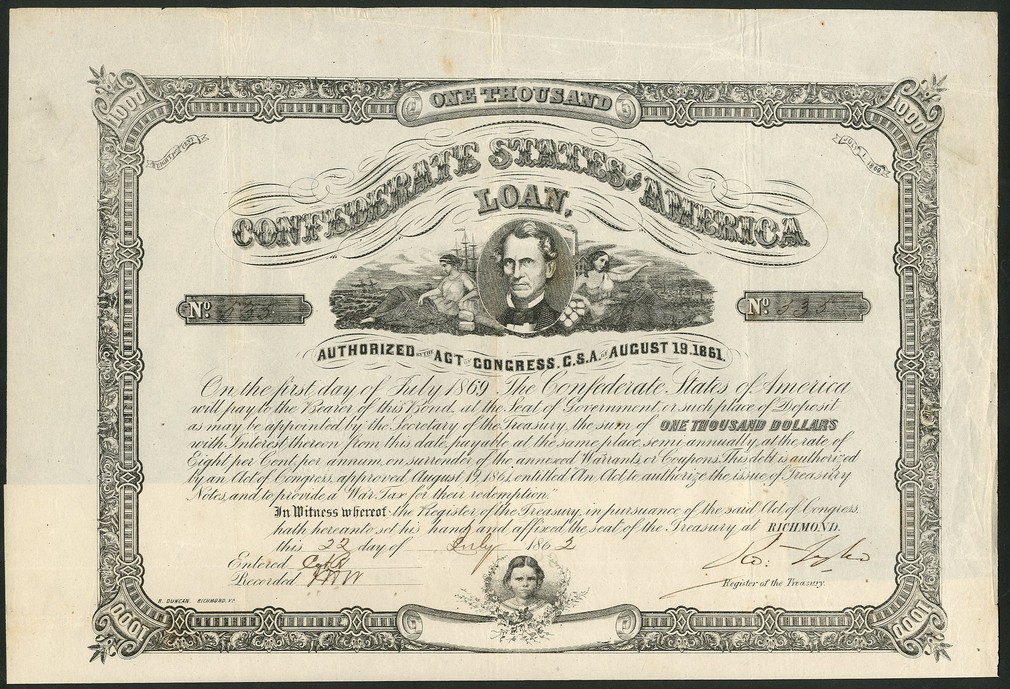 ONE THOUSAND
1000
1000
EIGHT PER CENT
JULY 1, 1869
CONFEDERATE STATES OF AMERICA
LOAN,
No 535
No 535
AUTHORIZED BY THE ACT OF CONGRESS, C.S.A. OF AUGUST 19.1861.
On the first day of July 1869, The Confederate States of America
will pay to the Bearer of this Bond, at the Seat of Government, or such place of Deposit
as may be appointed by the Secretary of the Treasury, the sum of ONE THOUSAND DOLLARS
with Interest thereon from this date, payable at the same place, semi annually, at the rate of
Eight per Cent, per annum, on surrender of the annexed Warrants, or Coupons. This debt is authorized
by an Act of Congress, approved August 19, 1861, entitled "An Act to authorize the issue of Treasury
Notes, and to provide a War Tax for their redemption."
In Witness whereof, the Register of the Treasury, in pursuance of the said Act of Congress,
hath hereunto set his hand and affixed the seal of the Treasury at RICHMOND.
this 22 day of July 1862
Entered
Recorded
Register of the Treasury.
B. DUNCAN, RICHMOND, VA
1000
1000